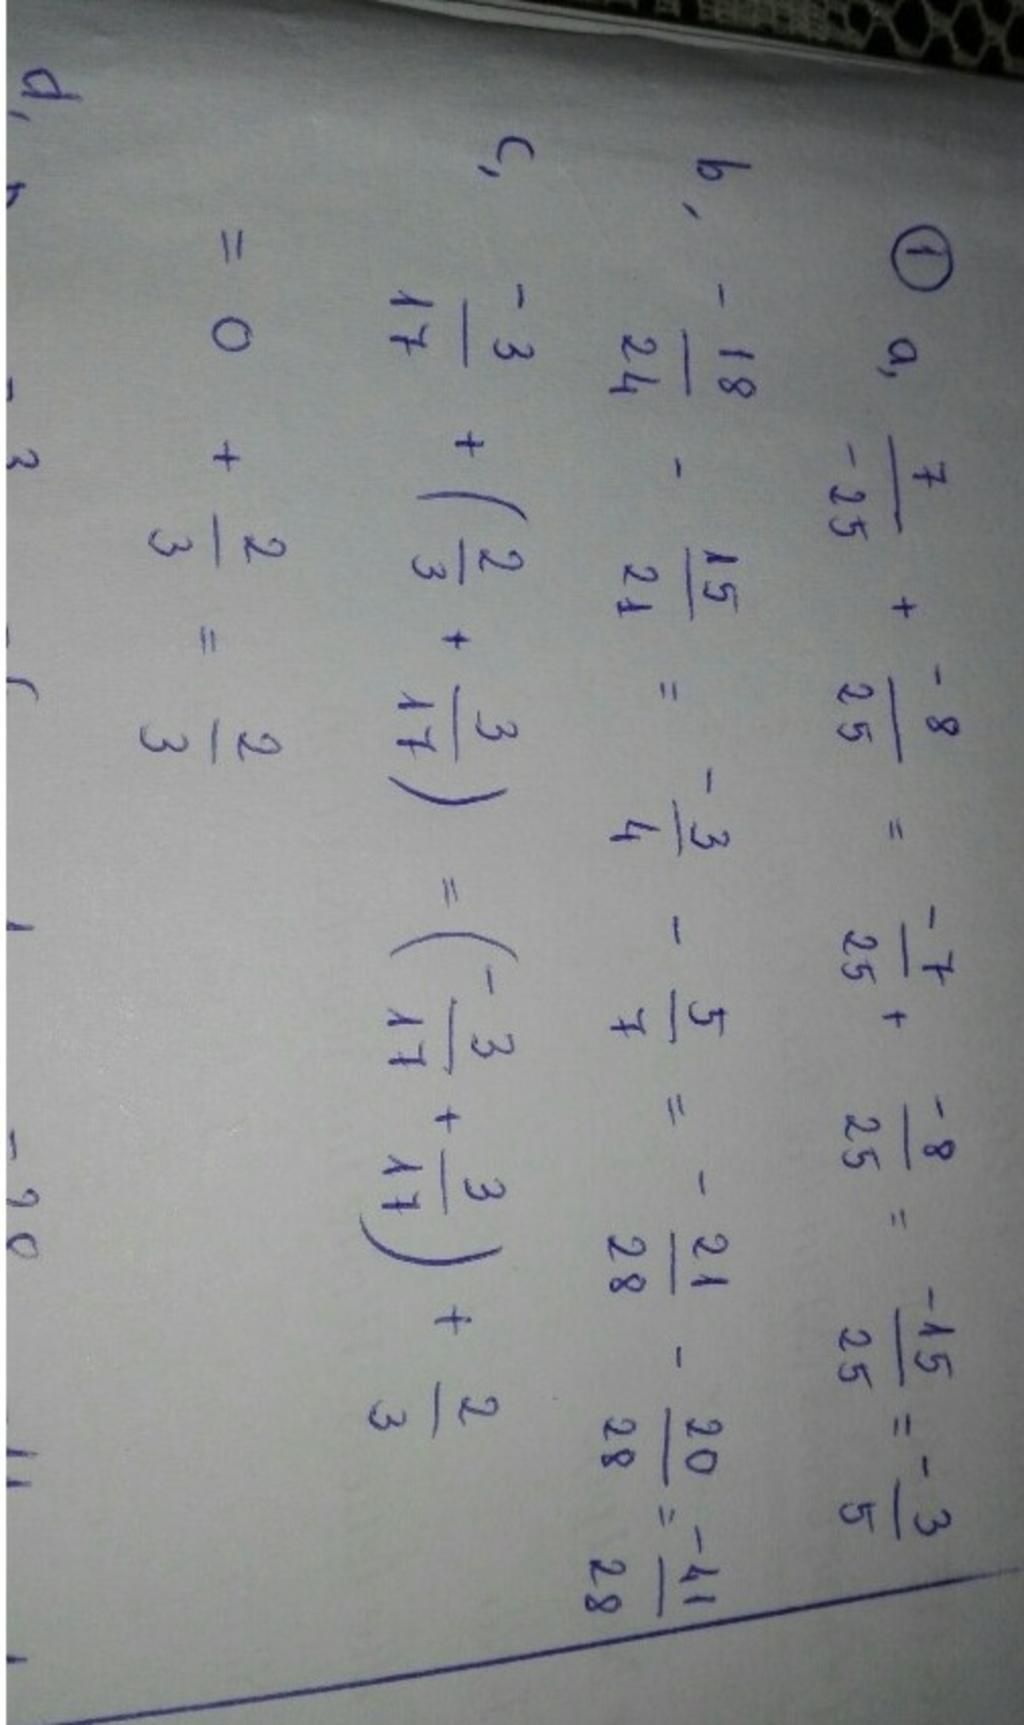 ① a, 7/-25 + -8/25 = -7/25 + -8/25 = -15/25 = -3/5
b, -18/24 - 15/21 = -3/4 - 5/7 = -21/28 - 20/28 = -41/28
c, -3/17 + (2/3 + 3/17) = (-3/17 + 3/17) + 2/3
= 0 + 2/3 = 2/3
d,